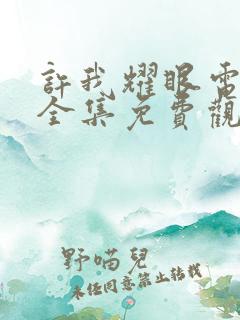 許我耀眼電
全集免費觀
野喵兒
未经同意禁止转载